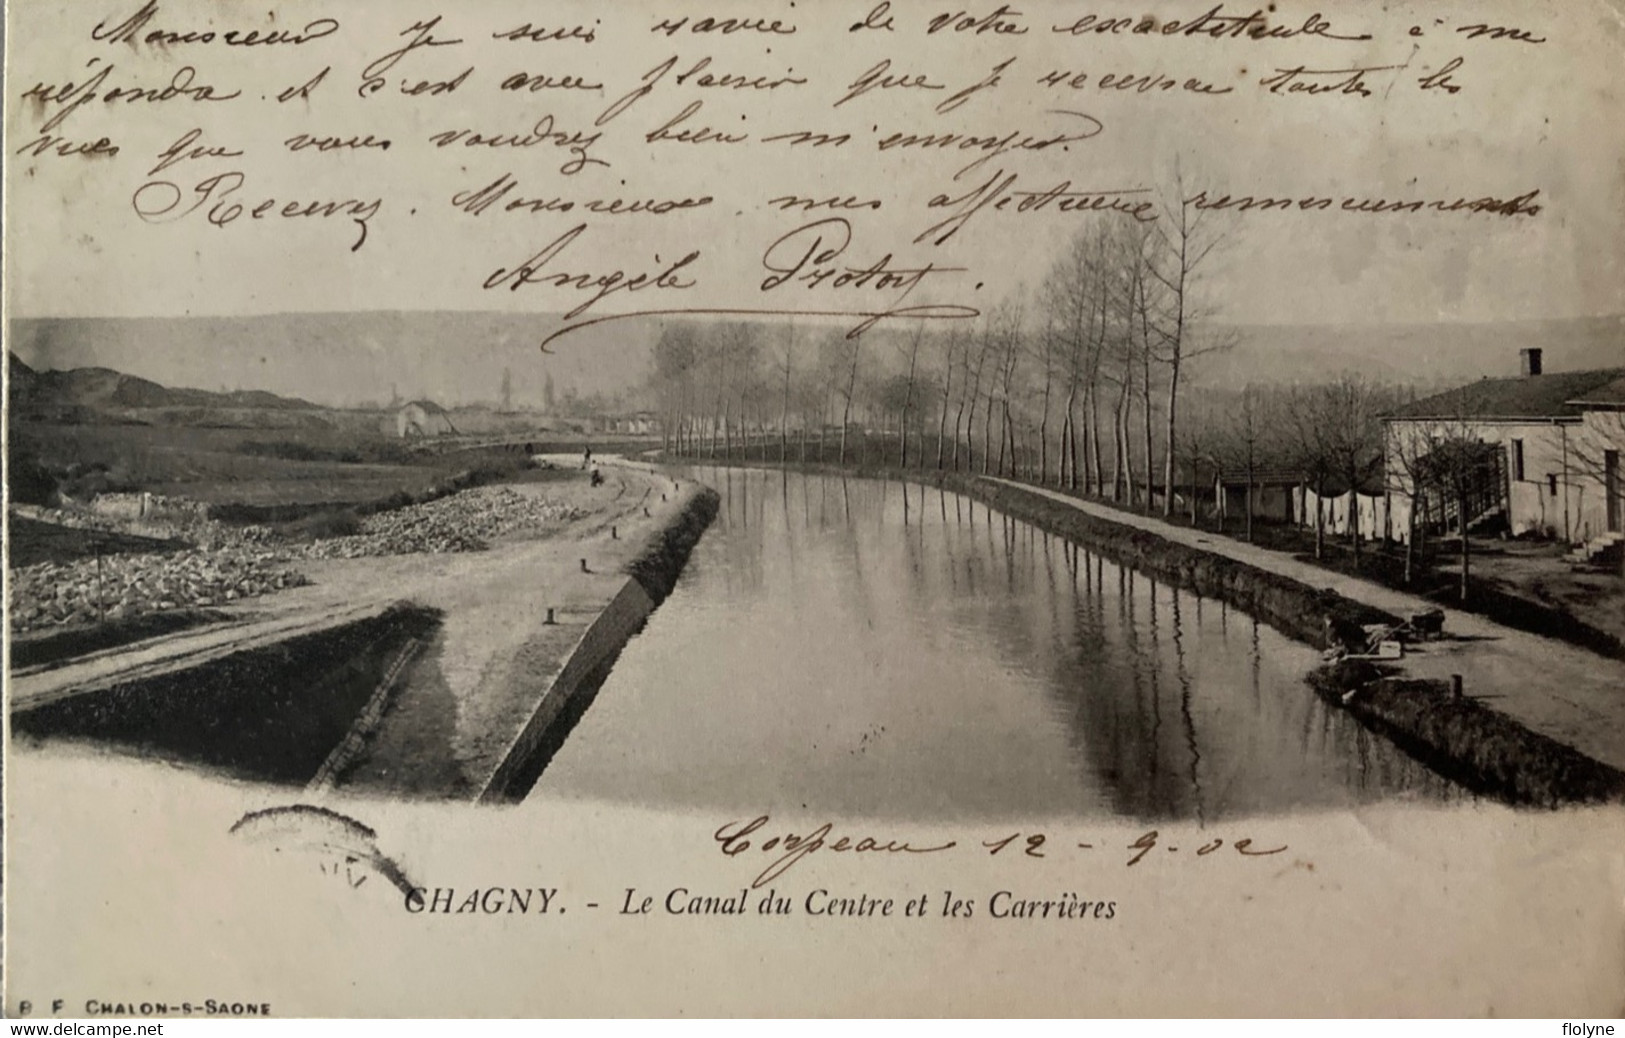 Monsieur Je suis ravie de votre exactitude à me
réponda et c'est avec plaisir que je recevrai toutes les
vues que vous voudrez bien m'envoyer.
Recevez. Monsieur. mes affectueux remerciements
Angèle Protoy.
Corpeau 12-9-02
CHAGNY. - Le Canal du Centre et les Carrières
B F CHALON-S-SAONE
Delcampe.net
floIyne